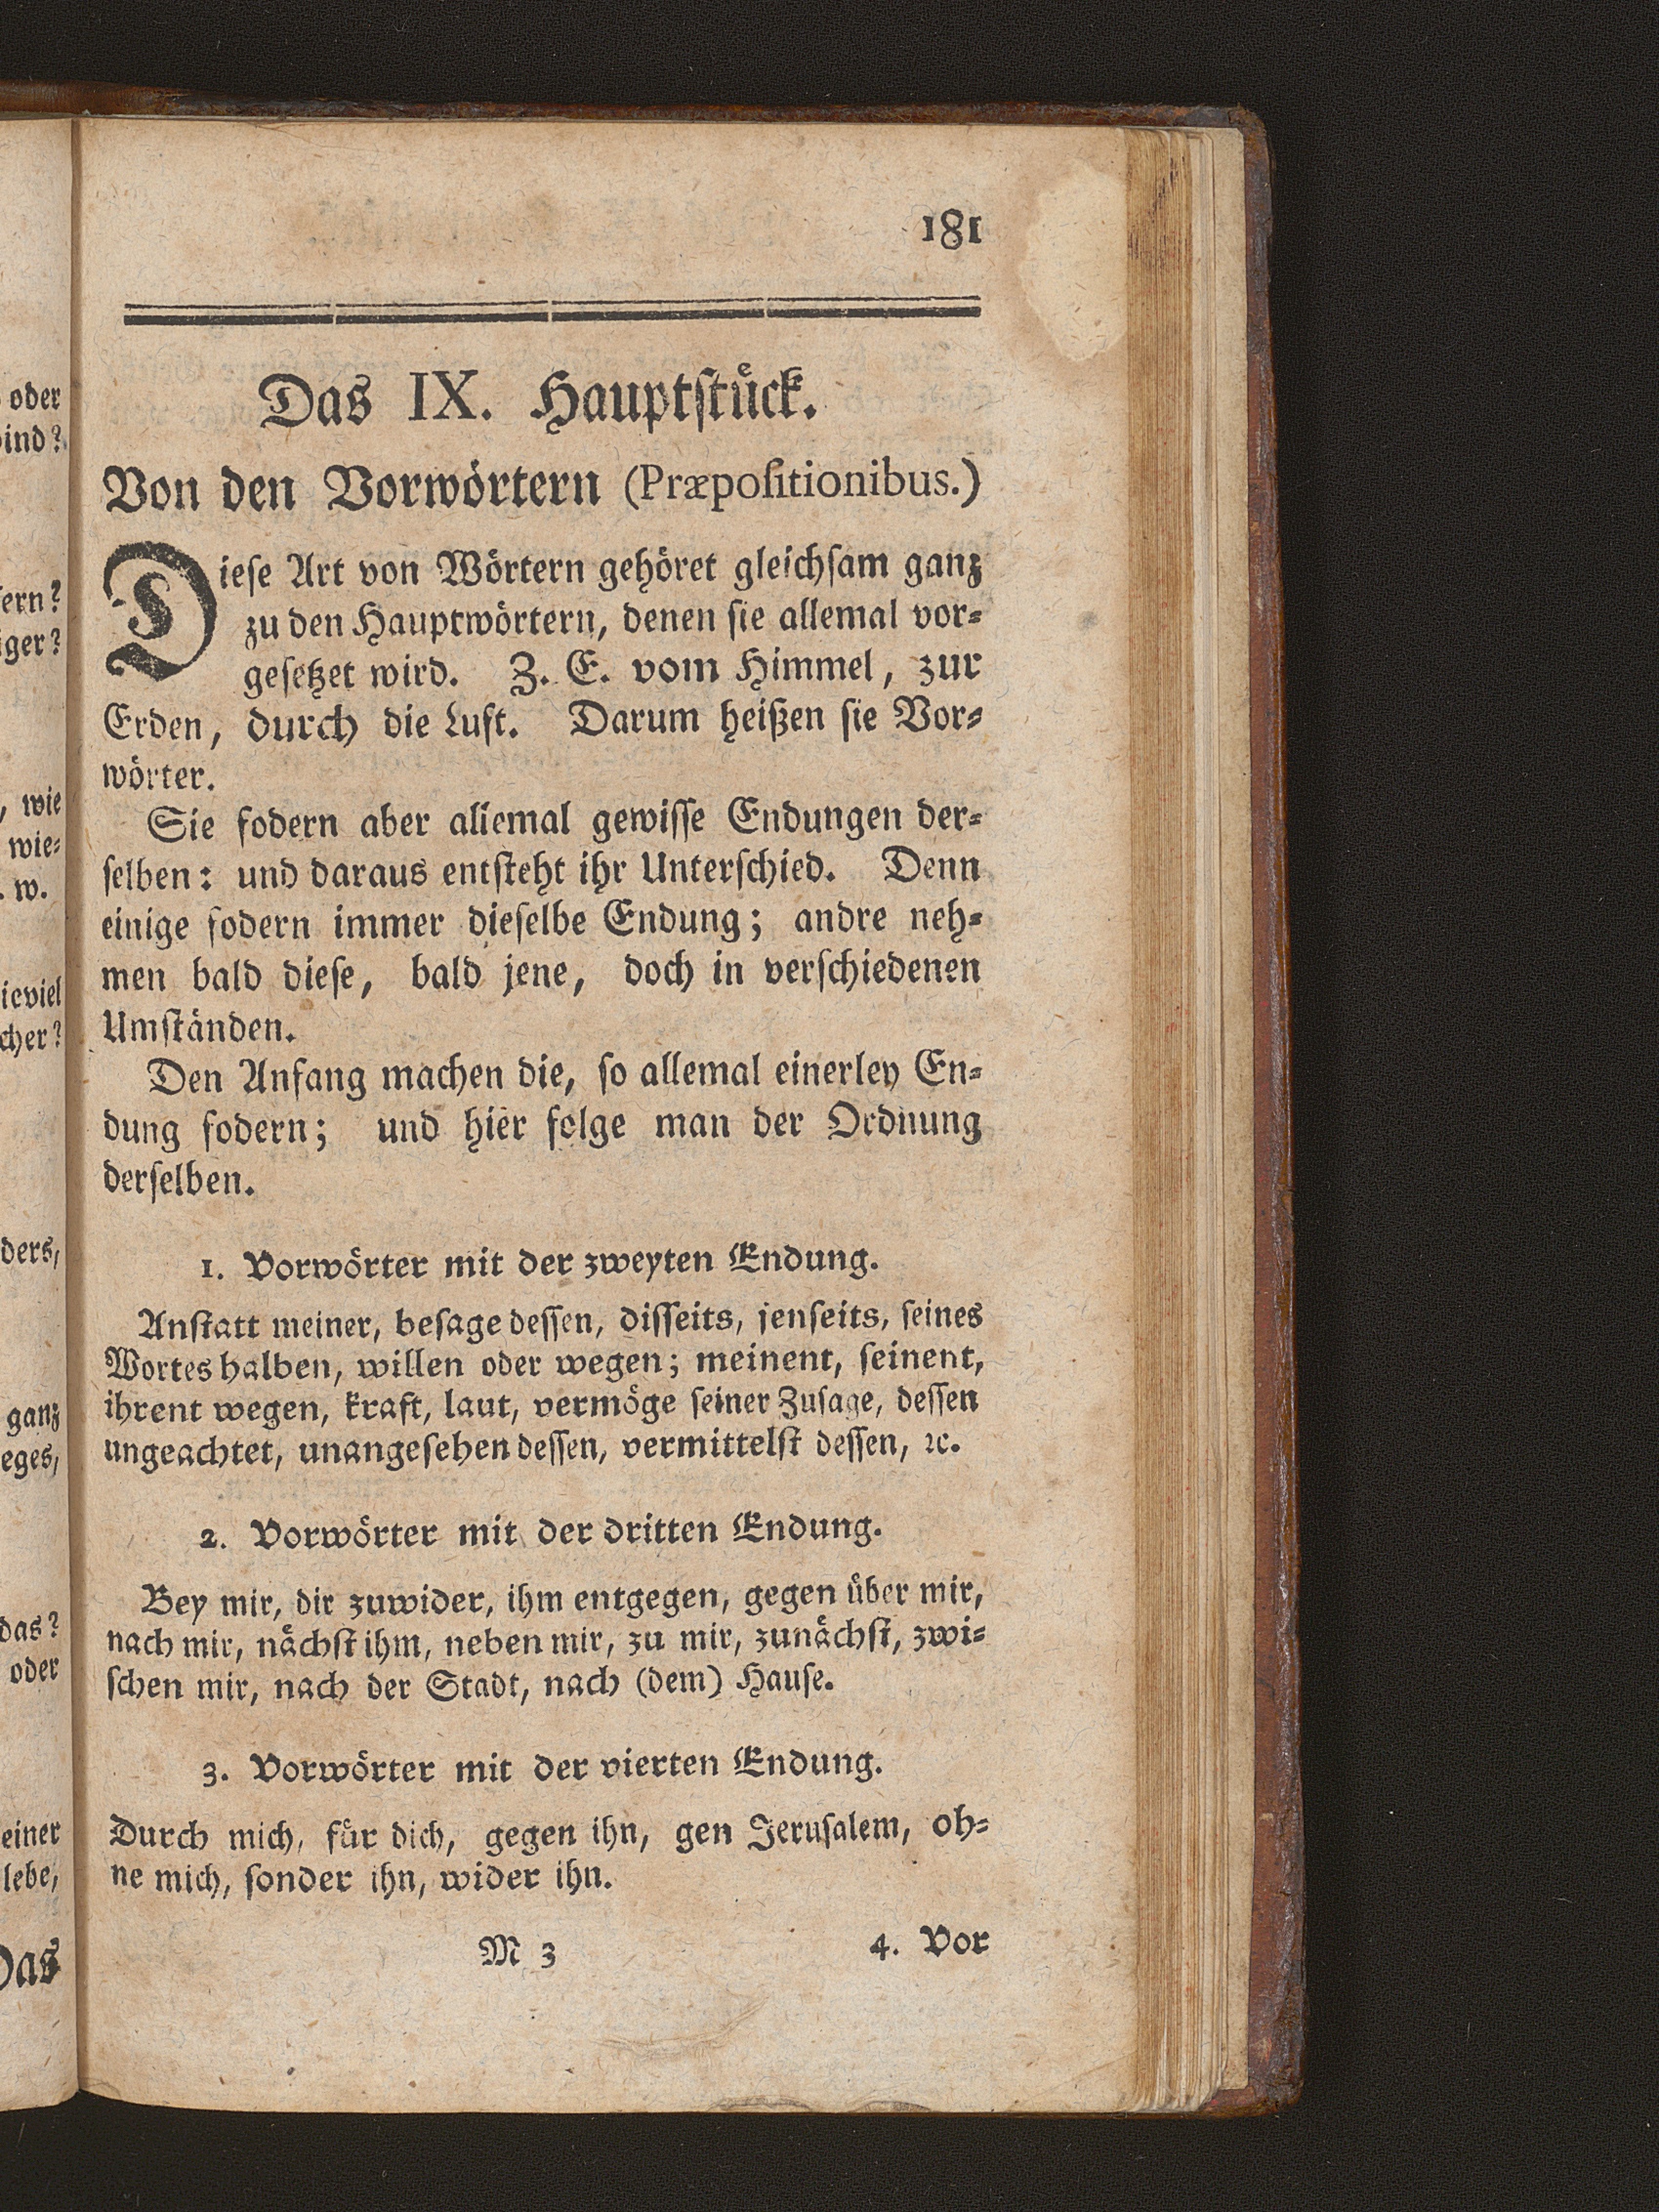 181
Das IX. Hauptſtuͤck.
Von den Vorwoͤrtern (Præpoſitionibus.)
Dieſe Art von Woͤrtern gehoͤret gleichſam ganz
zu den Hauptwoͤrtern, denen ſie allemal vor⸗
geſetzet wird. Z. E. vom Himmel, zur
Erden, durch die Luft. Darum heißen ſie Vor⸗
woͤrter.
Sie fodern aber allemal gewiſſe Endungen der⸗
ſelben: und daraus entſteht ihr Unterſchied. Denn
einige fodern immer dieſelbe Endung; andre neh⸗
men bald dieſe, bald jene, doch in verſchiedenen
Umſtaͤnden.
Den Anfang machen die, ſo allemal einerley En⸗
dung fodern; und hier folge man der Ordnung
derſelben.
1. Vorwoͤrter mit der zweyten Endung.
Anſtatt meiner, beſage deſſen, diſſeits, jenſeits, ſeines
Wortes halben, willen oder wegen; meinent, ſeinent,
ihrent wegen, kraft, laut, vermoͤge ſeiner Zuſage, deſſen
ungeachtet, unangeſehen deſſen, vermittelſt deſſen, ꝛc.
2. Vorwoͤrter mit der dritten Endung.
Bey mir, dir zuwider, ihm entgegen, gegen uͤber mir,
nach mir, naͤchſt ihm, neben mir, zu mir, zunaͤchſt, zwi⸗
ſchen mir, nach der Stadt, nach (dem) Hauſe.
3. Vorwoͤrter mit der vierten Endung.
Durch mich, fuͤr dich, gegen ihn, gen Jeruſalem, oh⸗
ne mich, ſonder ihn, wider ihn.
M 3 4. Vor